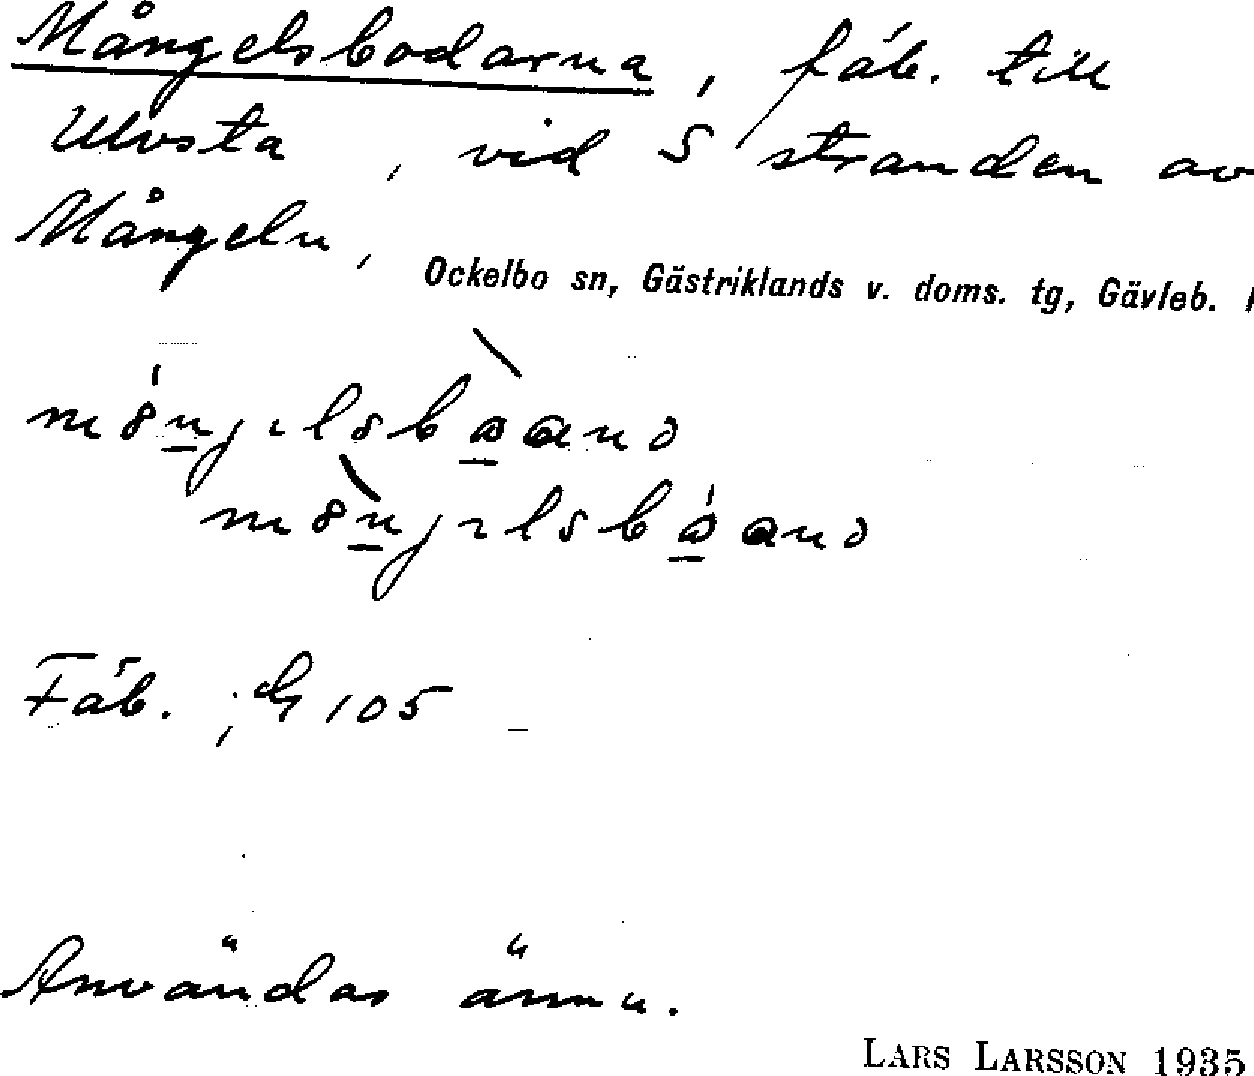 Mångelsbodarna, fäb. till
Ulvsta, vid S stranden av
Mångeln,
Ockelbo sn, Gästriklands v. doms. tg, Gävleb. l
Fäb. ; G 105
Användas ännu.
LARS LARSSON 1935